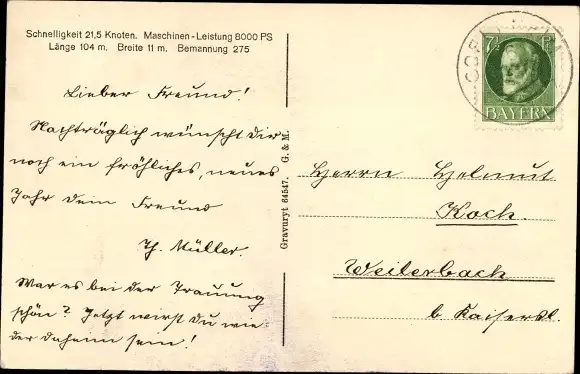 Schnelligkeit 21,5 Knoten. Maschinen-Leistung 8000 PS
Länge 104 m. Breite 11 m. Bemannung 275
Lieber Freund!
Nachträglich wünscht dir
noch ein fröhliches, neues
Jahr dein Freund
Th. Müller.
War es bei der Trauung
schön? Jetzt wirst du wie-
der daheim sein!
Gravuryt 64547. G. & M.
7½ Pf.
BAYERN
Herrn Helmut
Koch.
Weilerbach
b Kaisersl.